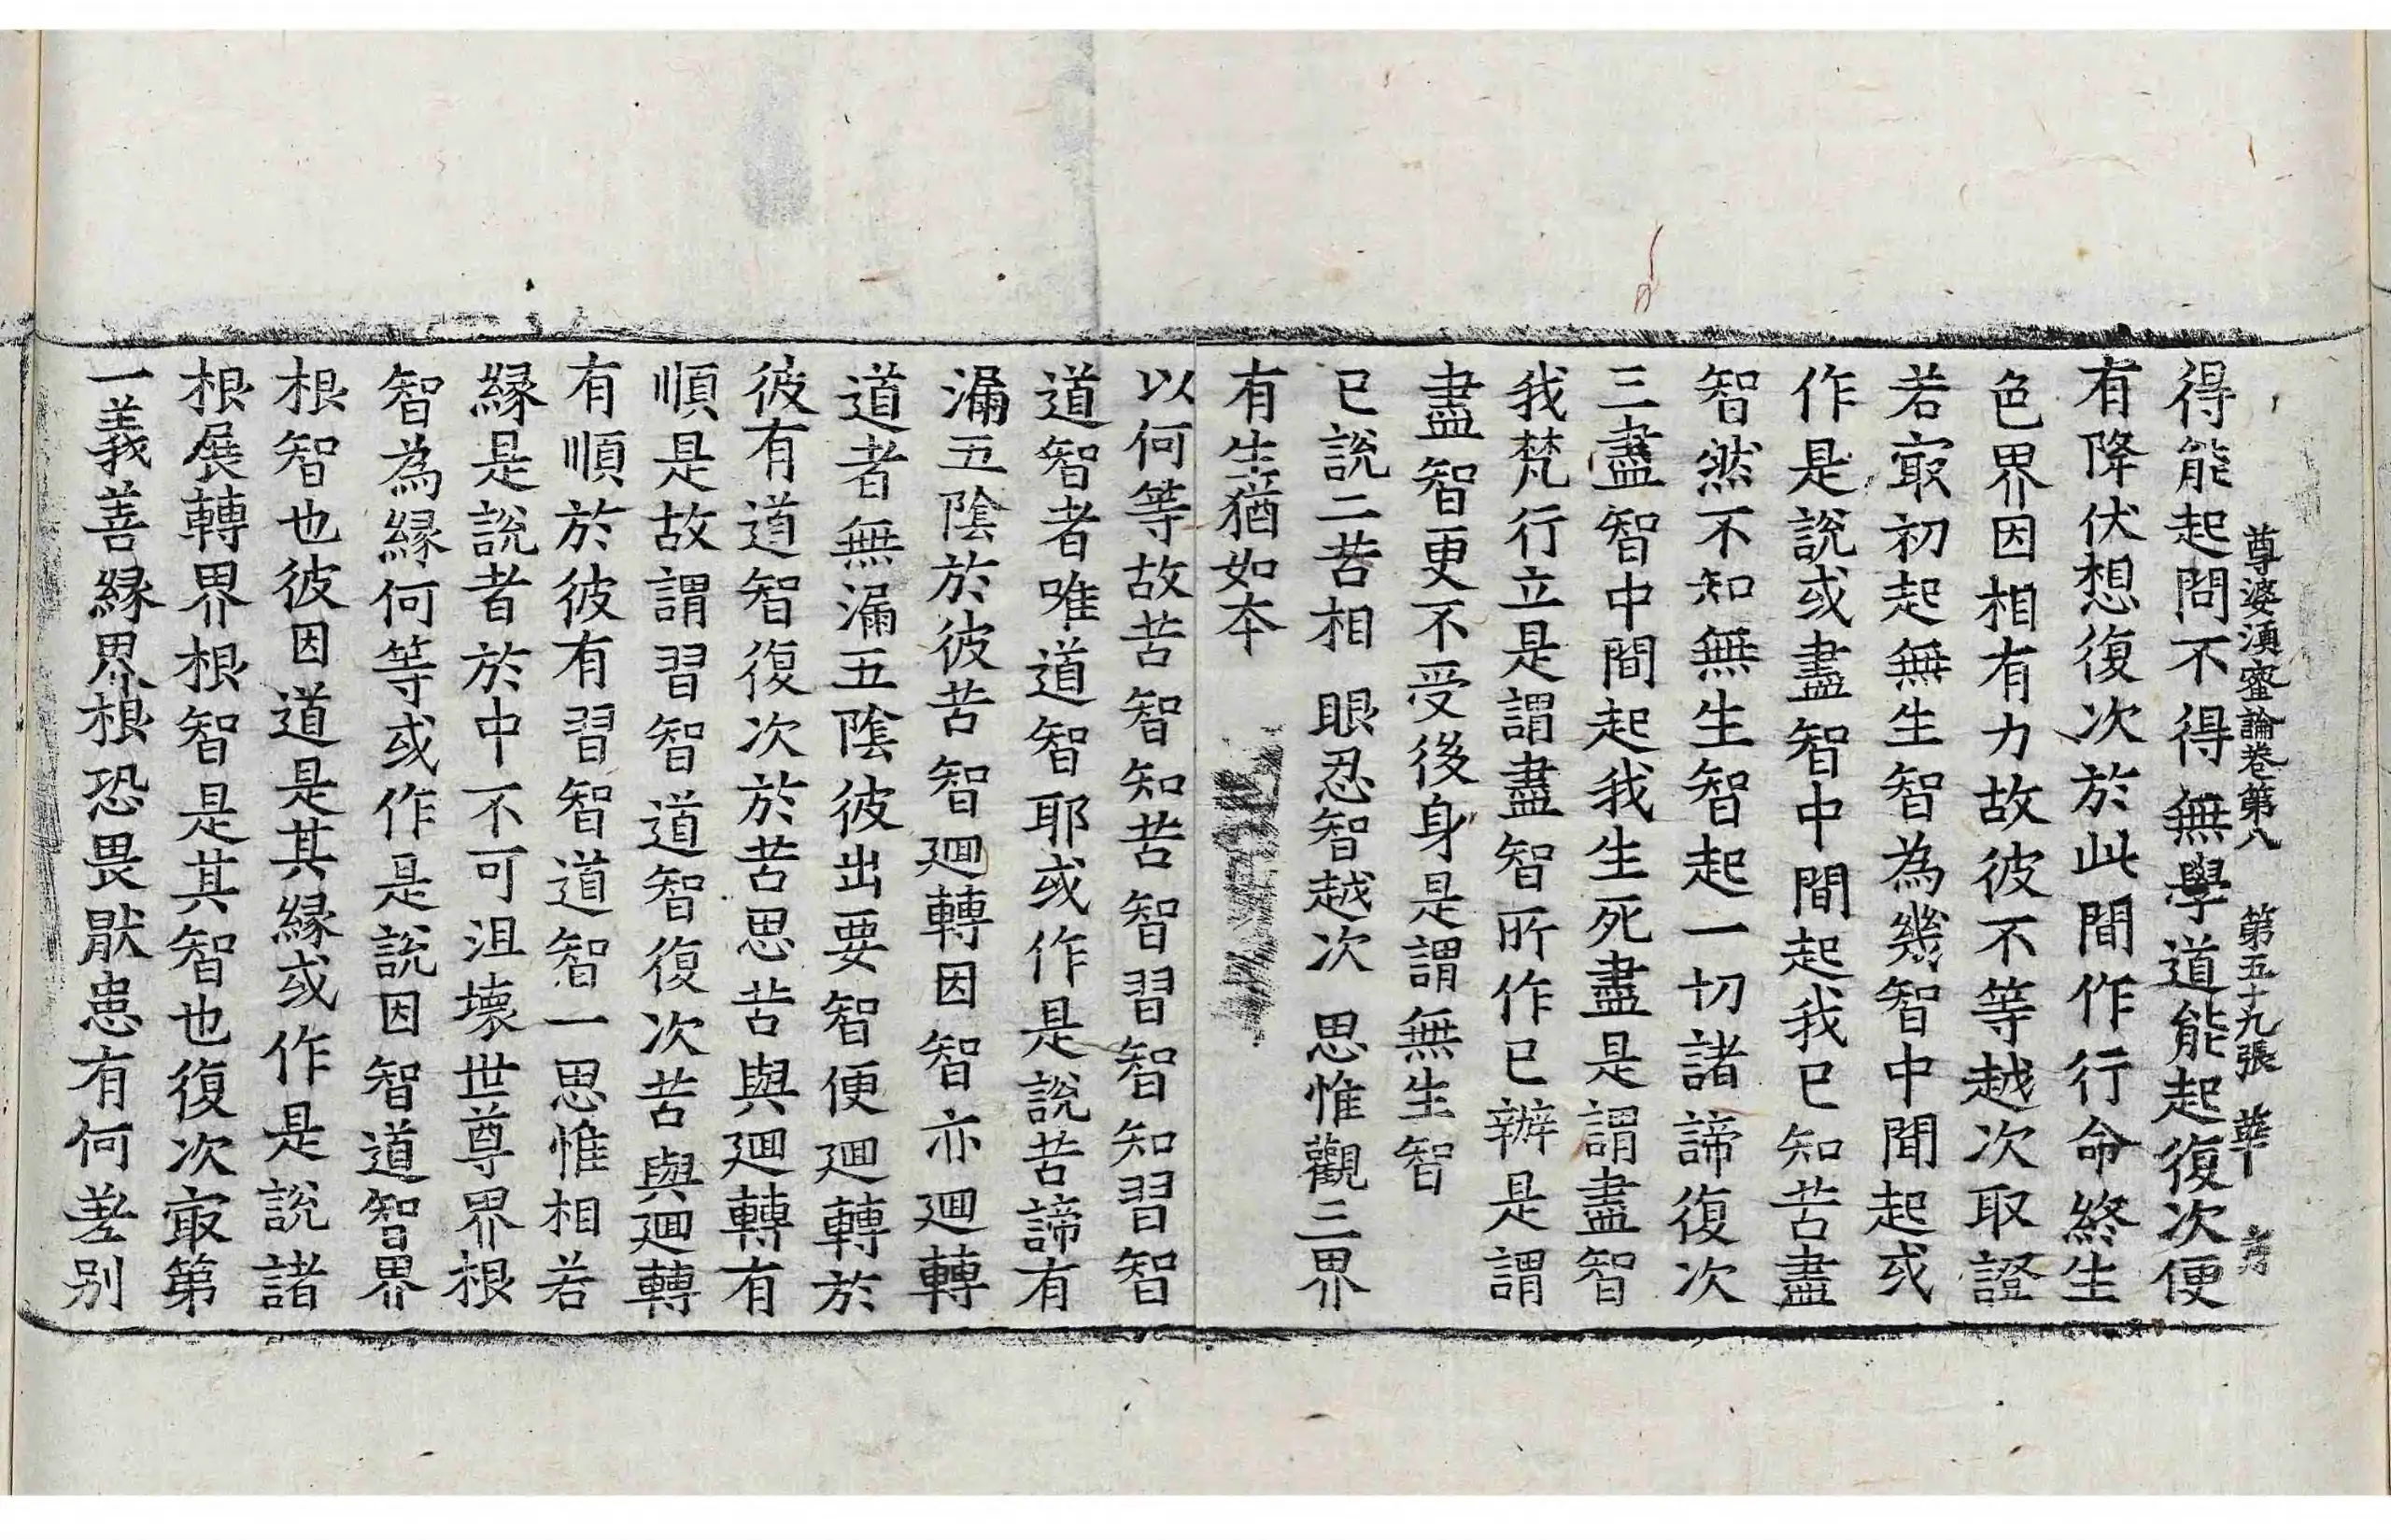 尊婆湏蜜論卷第八 第五十九張 華
得能起問不得無學道能起復次便
有降伏想復次於此間作行命終生
色界因相有力故彼不等越次取證
若㝡初起無生智為幾智中間起或
作是說或盡智中間起我已知苦盡
智然不知無生智起一切諸諦復次
三盡智中間起我生死盡是謂盡智
我梵行立是謂盡智所作已辦是謂
盡智更不受後身是謂無生智
已說二苦相 眼忍智越次 思惟觀三界
有生猶如夲
以何等故苦智知苦智習智知習智
道智者唯道智耶或作是說苦諦有
漏五陰於彼苦智廻轉因智亦廻轉
道者無漏五陰彼出要智便廻轉於
彼有道智復次於苦思苦與廻轉有
順是故謂習智道智復次苦與廻轉
有順於彼有習智道智一思惟相若
縁是說者於中不可沮壞世尊界根
智為縁何等或作是說因智道智界
根智也彼因道是其縁或作是說諸
根展轉界根智是其智也復次㝡第
一義善縁界根恐畏猒患有何差别